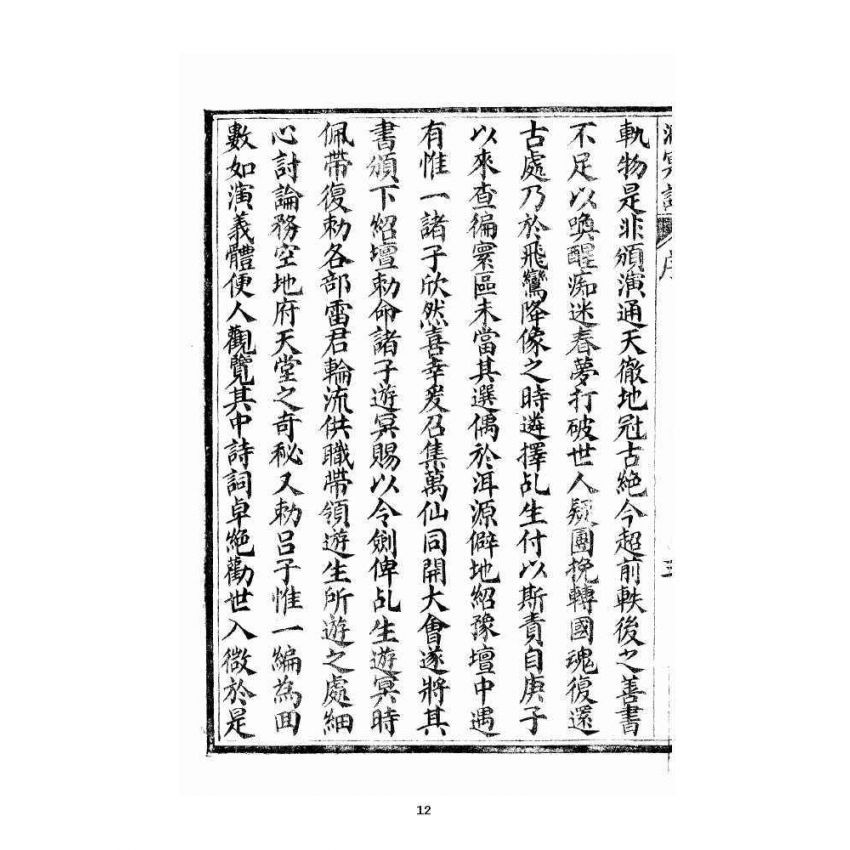 洞冥記 序 三
軌物是非頒演通天徹地冠古絶今超前軼後之善書
不足以喚醒痴迷春夢打破世人疑團挽轉國魂復還
古處乃於飛鸞降像之時遴擇乩生付以斯責自庚子
以來查徧寰區未當其選偶於洱源僻地紹豫壇中遇
有惟一諸子欣然喜幸爰召集萬仙同開大會遂將其
書頒下紹壇勅命諸子遊冥賜以令劍俾乩生遊冥時
佩帶復勅各部雷君輪流供職帶領遊生所遊之處細
心討論務空地府天堂之奇秘又勅呂子惟一編為回
數如演義體便人觀覽其中詩詞卓絶勸世入微於是
12